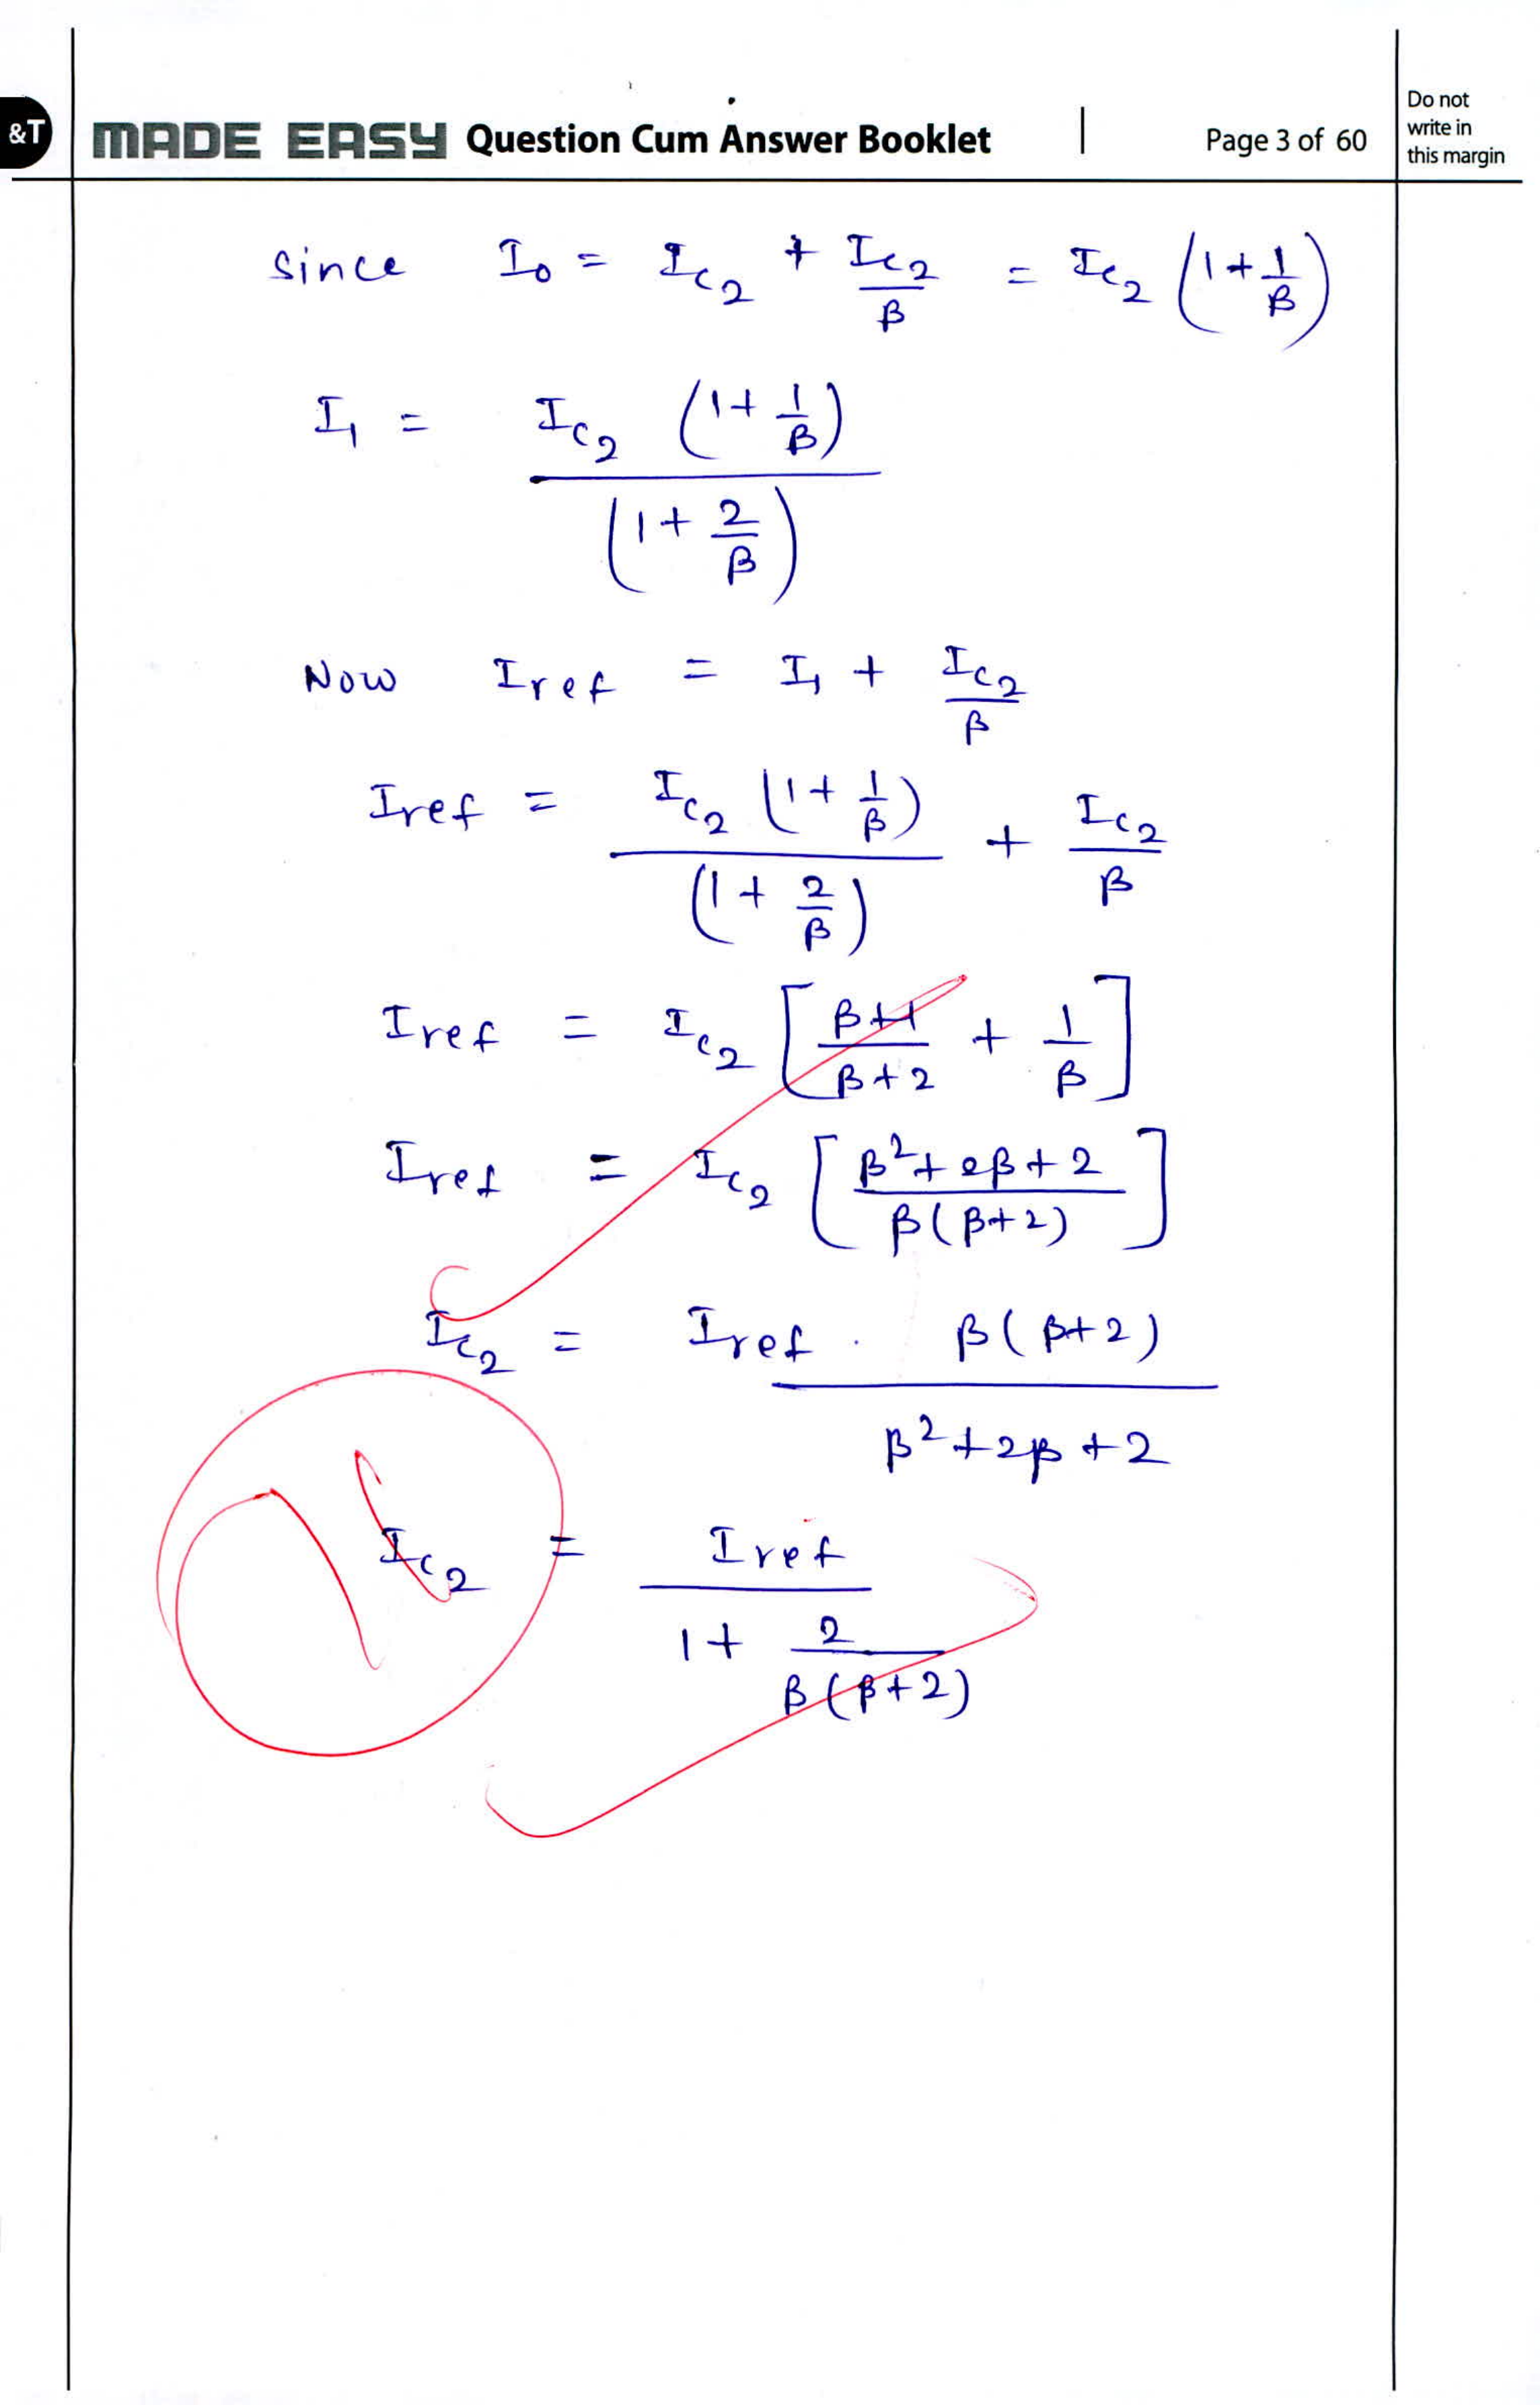 &T MADE EASY Question Cum Answer Booklet | Page 3 of 60
Do not
write in
this margin
Since I₀ = I_C₂ + I_C₂/β = I_C₂ (1 + 1/β)
I₁ = I_C₂ (1 + 1/β) / (1 + 2/β)
Now Iref = I₁ + I_C₂/β
Iref = I_C₂ (1 + 1/β) / (1 + 2/β) + I_C₂/β
Iref = I_C₂ [(β+1)/(β+2) + 1/β]
Iref = I_C₂ [(β²+2β+2)/(β(β+2))]
I_C₂ = Iref · β(β+2) / (β²+2β+2)
I_C₂ = Iref / (1 + 2/(β(β+2)))